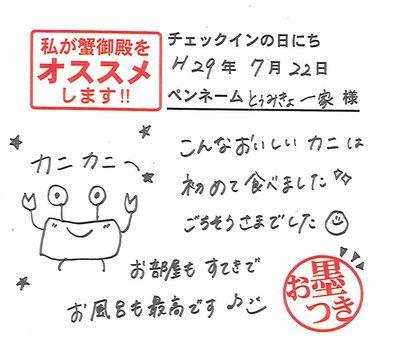 私が蟹御殿を
オススメ
します!!
チェックインの日にち
H29年 7月22日
ペンネーム とぅみきょ一家 様
カニカニ〜
こんなおいしい カニは
初めて食べました
ごちそうさまでした
お部屋も すてきで
お風呂も最高です♪
お墨つき